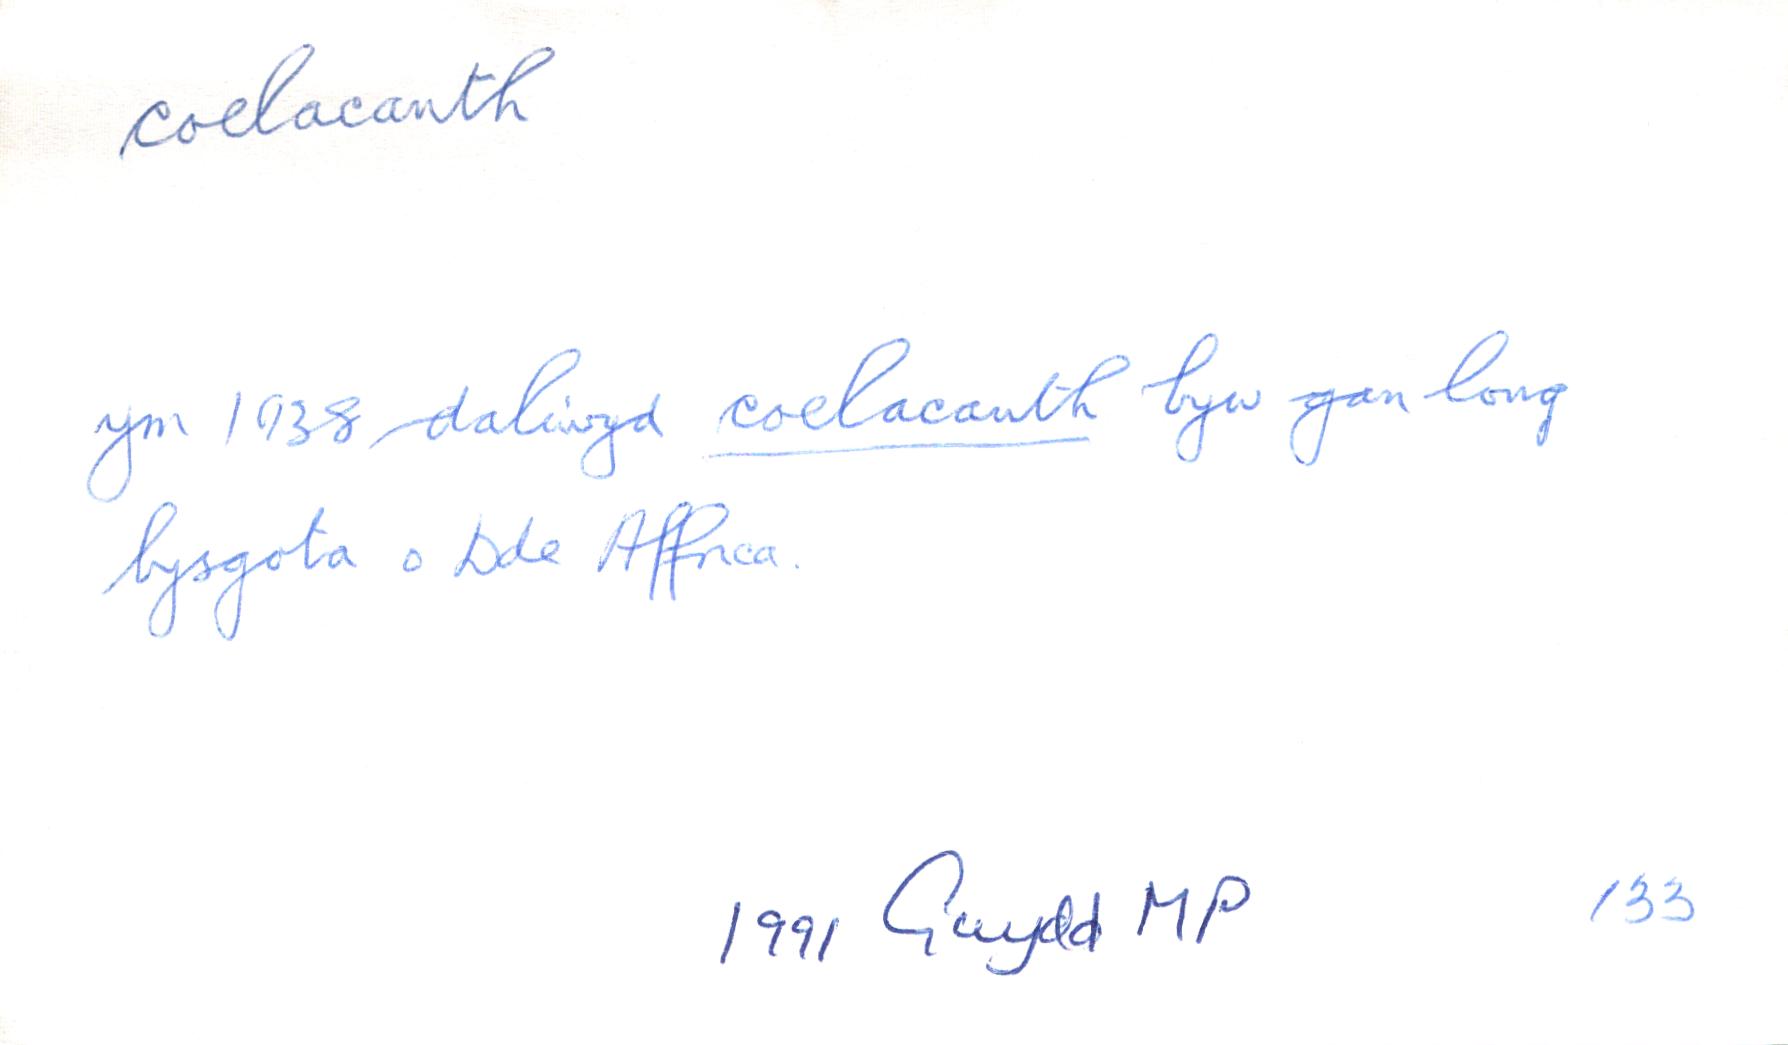 coelacanth
ym 1938 daliwyd coelacanth byw gan long
bysgota o Dde Affrica.
1991 Gwydd MP 133